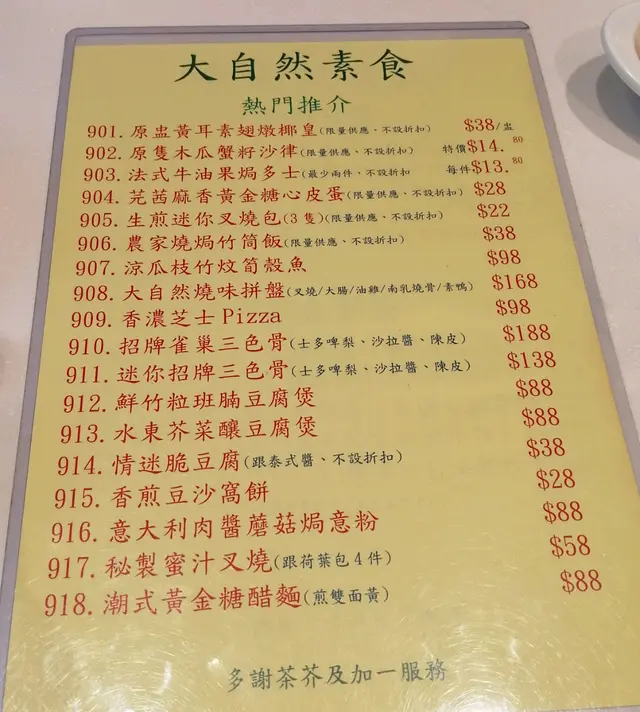 大自然素食
熱門推介
901. 原盅黃耳素翅燉椰皇(限量供應、不設折扣) $38/盅
902. 原隻木瓜蟹籽沙律(限量供應、不設折扣) 特價$14.80
903. 法式牛油果焗多士(最少兩件、不設折扣 每件$13.80
904. 芫茜麻香黃金糖心皮蛋(限量供應、不設折扣) $28
905. 生煎迷你叉燒包(3隻)(限量供應、不設折扣) $22
906. 農家燒焗竹筒飯(限量供應、不設折扣) $38
907. 涼瓜枝竹炆筍殼魚 $98
908. 大自然燒味拼盤(叉燒/大腸/油雞/南乳燒骨/素鴨) $168
909. 香濃芝士Pizza $98
910. 招牌雀巢三色骨(士多啤梨、沙拉醬、陳皮) $188
911. 迷你招牌三色骨(士多啤梨、沙拉醬、陳皮) $138
912. 鮮竹粒班腩豆腐煲 $88
913. 水東芥菜釀豆腐煲 $88
914. 情迷脆豆腐(跟泰式醬、不設折扣) $38
915. 香煎豆沙窩餅 $28
916. 意大利肉醬蘑菇焗意粉 $88
917. 秘製蜜汁叉燒(跟荷葉包4件) $58
918. 潮式黃金糖醋麵(煎雙面黃) $88
多謝茶芥及加一服務